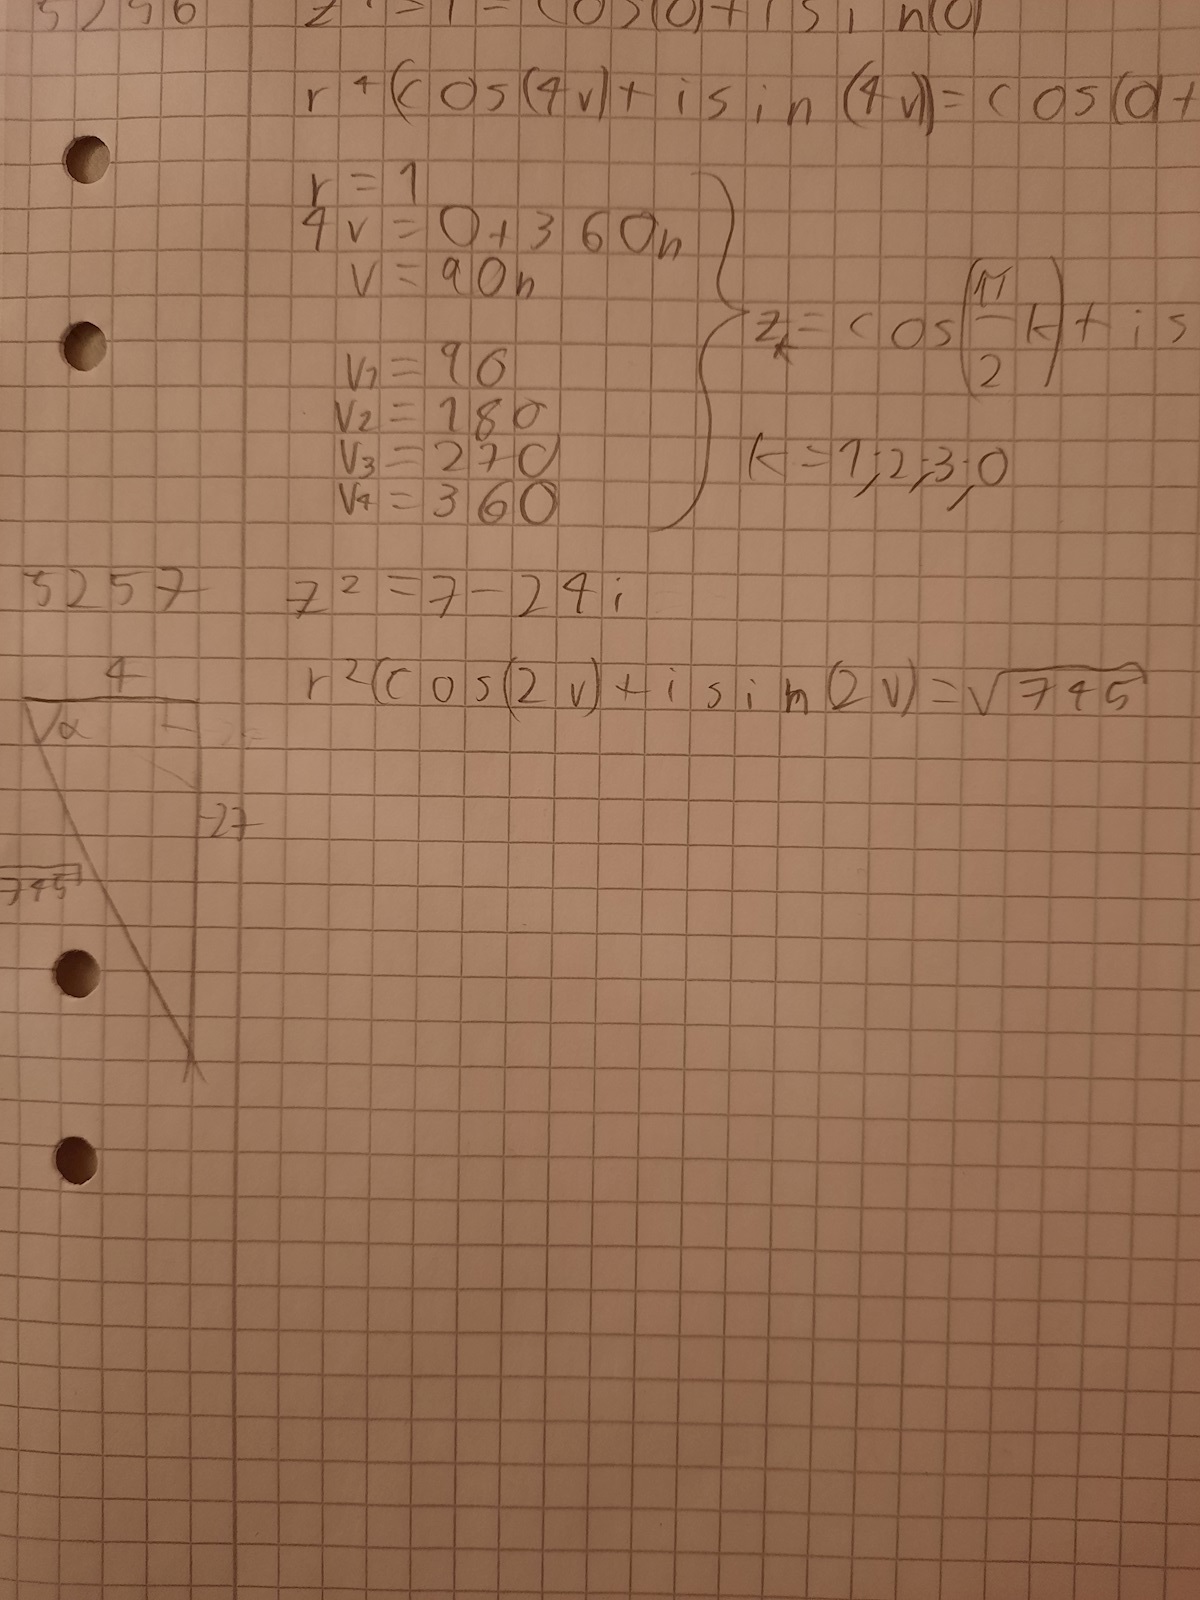 5256 z⁴ = 1 = cos(0) + i sin(0)
r⁴(cos(4v) + i sin(4v)) = cos(0) +
r = 1
4v = 0 + 360n
v = 90n
z_k = cos(π/2 k) + i s
v₁ = 90
v₂ = 180
v₃ = 270
v₄ = 360
k = 1; 2; 3; 0
5257 z² = 7 - 24i
4
r²(cos(2v) + i sin(2v) = √745
α
-27
√745